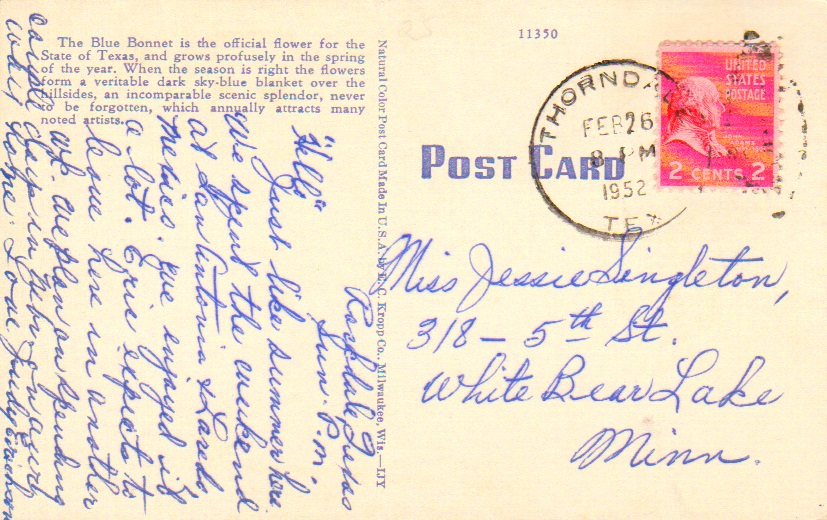 11350
The Blue Bonnet is the official flower for the
State of Texas, and grows profusely in the spring
of the year. When the season is right the flowers
form a veritable dark sky-blue blanket over the
hillsides, an incomparable scenic splendor, never
to be forgotten, which annually attracts many
noted artists.
Natural Color Post Card Made in U.S.A. by E. C. Kropp Co., Milwaukee, Wis.—IJY
POST CARD
THORNDALE
FEB 26
8 PM
1952
TEX
UNITED
STATES
POSTAGE
JOHN
ADAMS
2 CENTS 2
Rockdale Texas
Sun. P.M.
"Hello"
Just like summer here
We spent the weekend
at San Antonio & Laredo
Mexico. We enjoyed it
a lot. Eric expects to
leave here in another
wk. We plan on spending
couple days in on
way home. Love Judy
Miss Jessie Singleton,
318 - 5th St.
White Bear Lake
Minn.